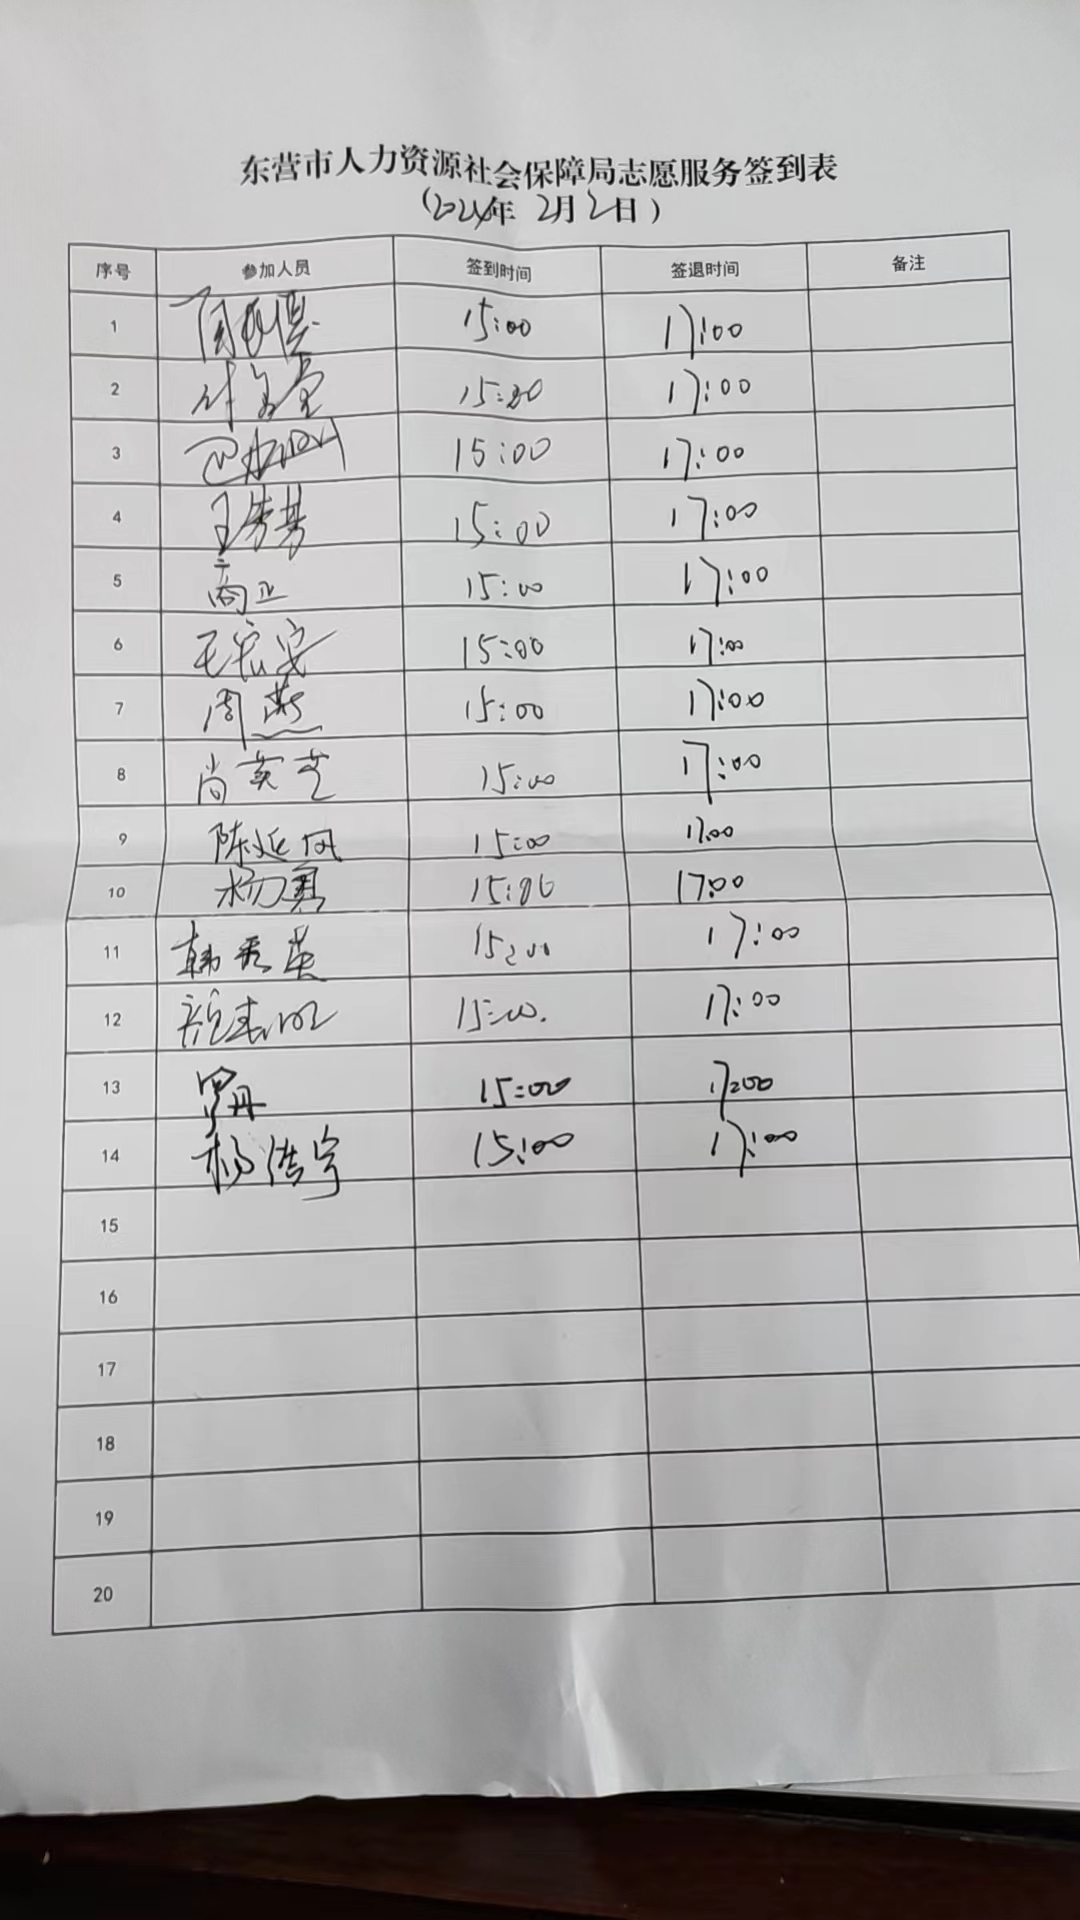 东营市人力资源社会保障局志愿服务签到表
(2024年 2月2日)
序号 参加人员 签到时间 签退时间 备注
1 15:00 17:00
2 17:00
3 15:00 17:00
4 王秀芬 15:00 17:00
5 商正 15:00 17:00
6 王宏安 15:00 17:00
7 周燕 15:00 17:00
8 尚英芝 15:00 17:00
9 陈延凤 15:00 17:00
10 杨勇 15:00 17:00
11 韩秀英 15:00 17:00
12 15:00. 17:00
13 罗丹 15:00 17:00
14 杨浩宇 15:00 17:00
15
16
17
18
19
20